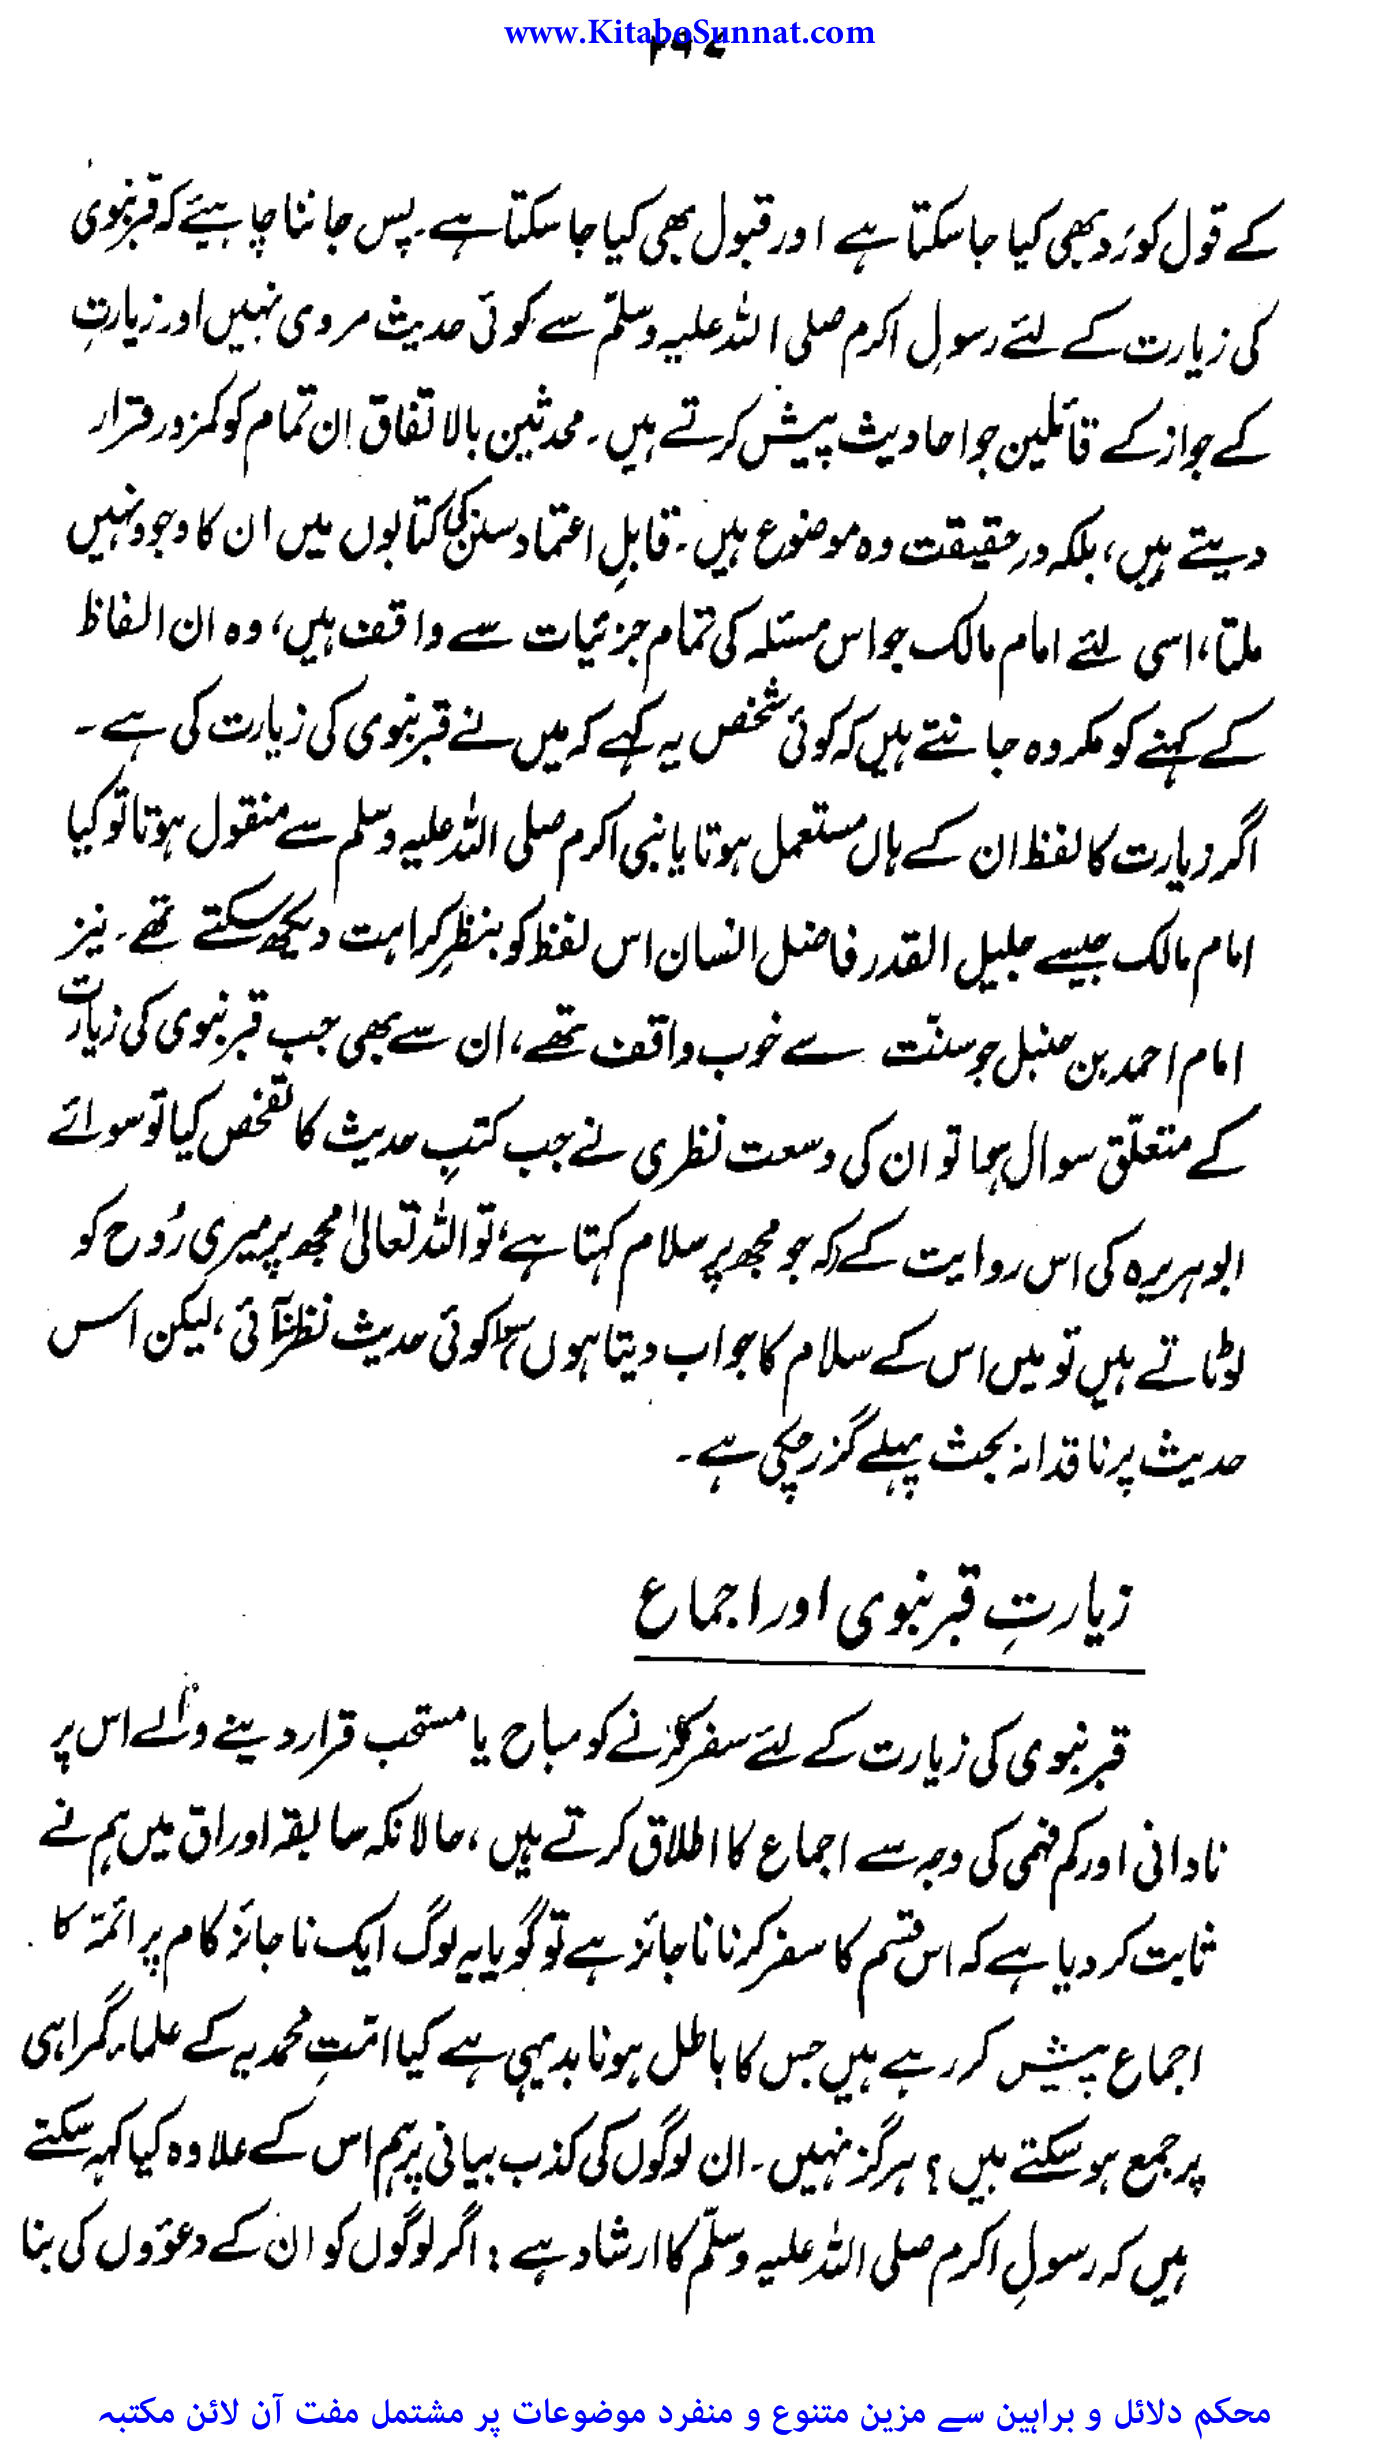 www.KitaboSunnat.com
کے قول کو رَد بھی کیا جا سکتا ہے اور قبول بھی کیا جا سکتا ہے۔ پس جاننا چاہیئے کہ قبر نبوی
کی زیارت کے لئے رسولِ اکرم صلی اللہ علیہ وسلّم سے کوئی حدیث مروی نہیں اور زیارتِ
کے جواز کے قائلین جو احادیث پیش کرتے ہیں۔ محدثین بالاتفاق اِن تمام کو کمزور قرار
دیتے ہیں، بلکہ درحقیقت وہ موضوع ہیں۔ قابلِ اعتماد سنن کی کتابوں میں ان کا وجود نہیں
ملتا، اسی لئے امام مالک جو اس مسئلہ کی تمام جزئیات سے واقف ہیں، وہ ان الفاظ
کے کہنے کو مکروہ جانتے ہیں کہ کوئی شخص یہ کہے کہ میں نے قبر نبوی کی زیارت کی ہے۔
اگر زیارت کا لفظ ان کے ہاں مستعمل ہوتا یا نبی اکرم صلی اللہ علیہ وسلم سے منقول ہوتا تو کیا
امام مالک جیسے جلیل القدر فاضل انسان اس لفظ کو بنظرِ کراہت دیکھ سکتے تھے۔ نیز
امام احمد بن حنبل جو سنّت سے خوب واقف تھے، ان سے بھی جب قبر نبوی کی زیارت
کے متعلّق سوال ہوا تو ان کی وسعت نظری نے جب کتبِ حدیث کا تفحص کیا تو سوائے
ابوہریرہ کی اس روایت کے کہ جو مجھ پر سلام کہتا ہے، تو اللہ تعالیٰ مجھ پر میری رُوح کو
لوٹاتے ہیں تو میں اس کے سلام کا جواب دیتا ہوں کوئی حدیث نظر نہ آئی، لیکن اس
حدیث پر ناقدانہ بحث پہلے گزر چکی ہے۔
زیارتِ قبر نبوی اور اجماع
قبر نبوی کی زیارت کے لئے سفر کرنے کو مباح یا مستحب قرار دینے والے اس پر
نادانی اور کم فہمی کی وجہ سے اجماع کا اطلاق کرتے ہیں، حالانکہ سابقہ اوراق میں ہم نے
ثابت کر دیا ہے کہ اس قسم کا سفر کرنا ناجائز ہے تو گویا یہ لوگ ایک ناجائز کام پر ائمّہ کا
اجماع پیش کر رہے ہیں جس کا باطل ہونا بدیہی ہے کیا امّتِ محمدیہ کے علماء گمراہی
پر جمع ہو سکتے ہیں؟ ہرگز نہیں۔ ان لوگوں کی کذب بیانی پر ہم اس کے علاوہ کیا کہہ سکتے
ہیں کہ رسولِ اکرم صلی اللہ علیہ وسلّم کا ارشاد ہے: اگر لوگوں کو ان کے دعوؤں کی بنا
محکم دلائل و براہین سے مزین متنوع و منفرد موضوعات پر مشتمل مفت آن لائن مکتبہ